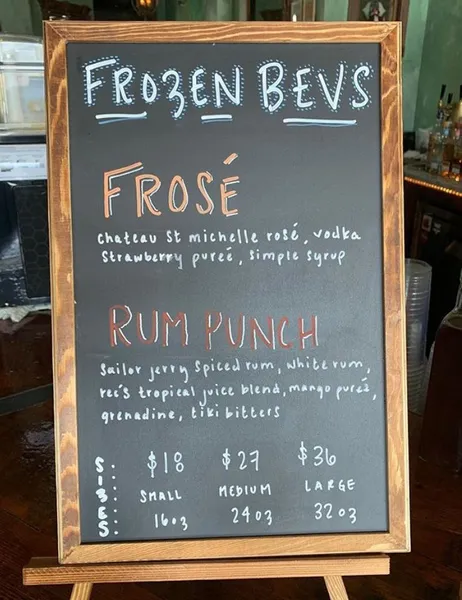 FROZEN BEVS
FROSÉ
chateau St michelle rosé, vodka
Strawberry pureé, simple syrup
RUM PUNCH
Sailor jerry Spiced rum, white rum,
reé's tropical juice blend, mango pureé,
grenadine, tiki bitters
SIZES: $18 $27 $36
SMALL MEDIUM LARGE
16oz 24oz 32oz